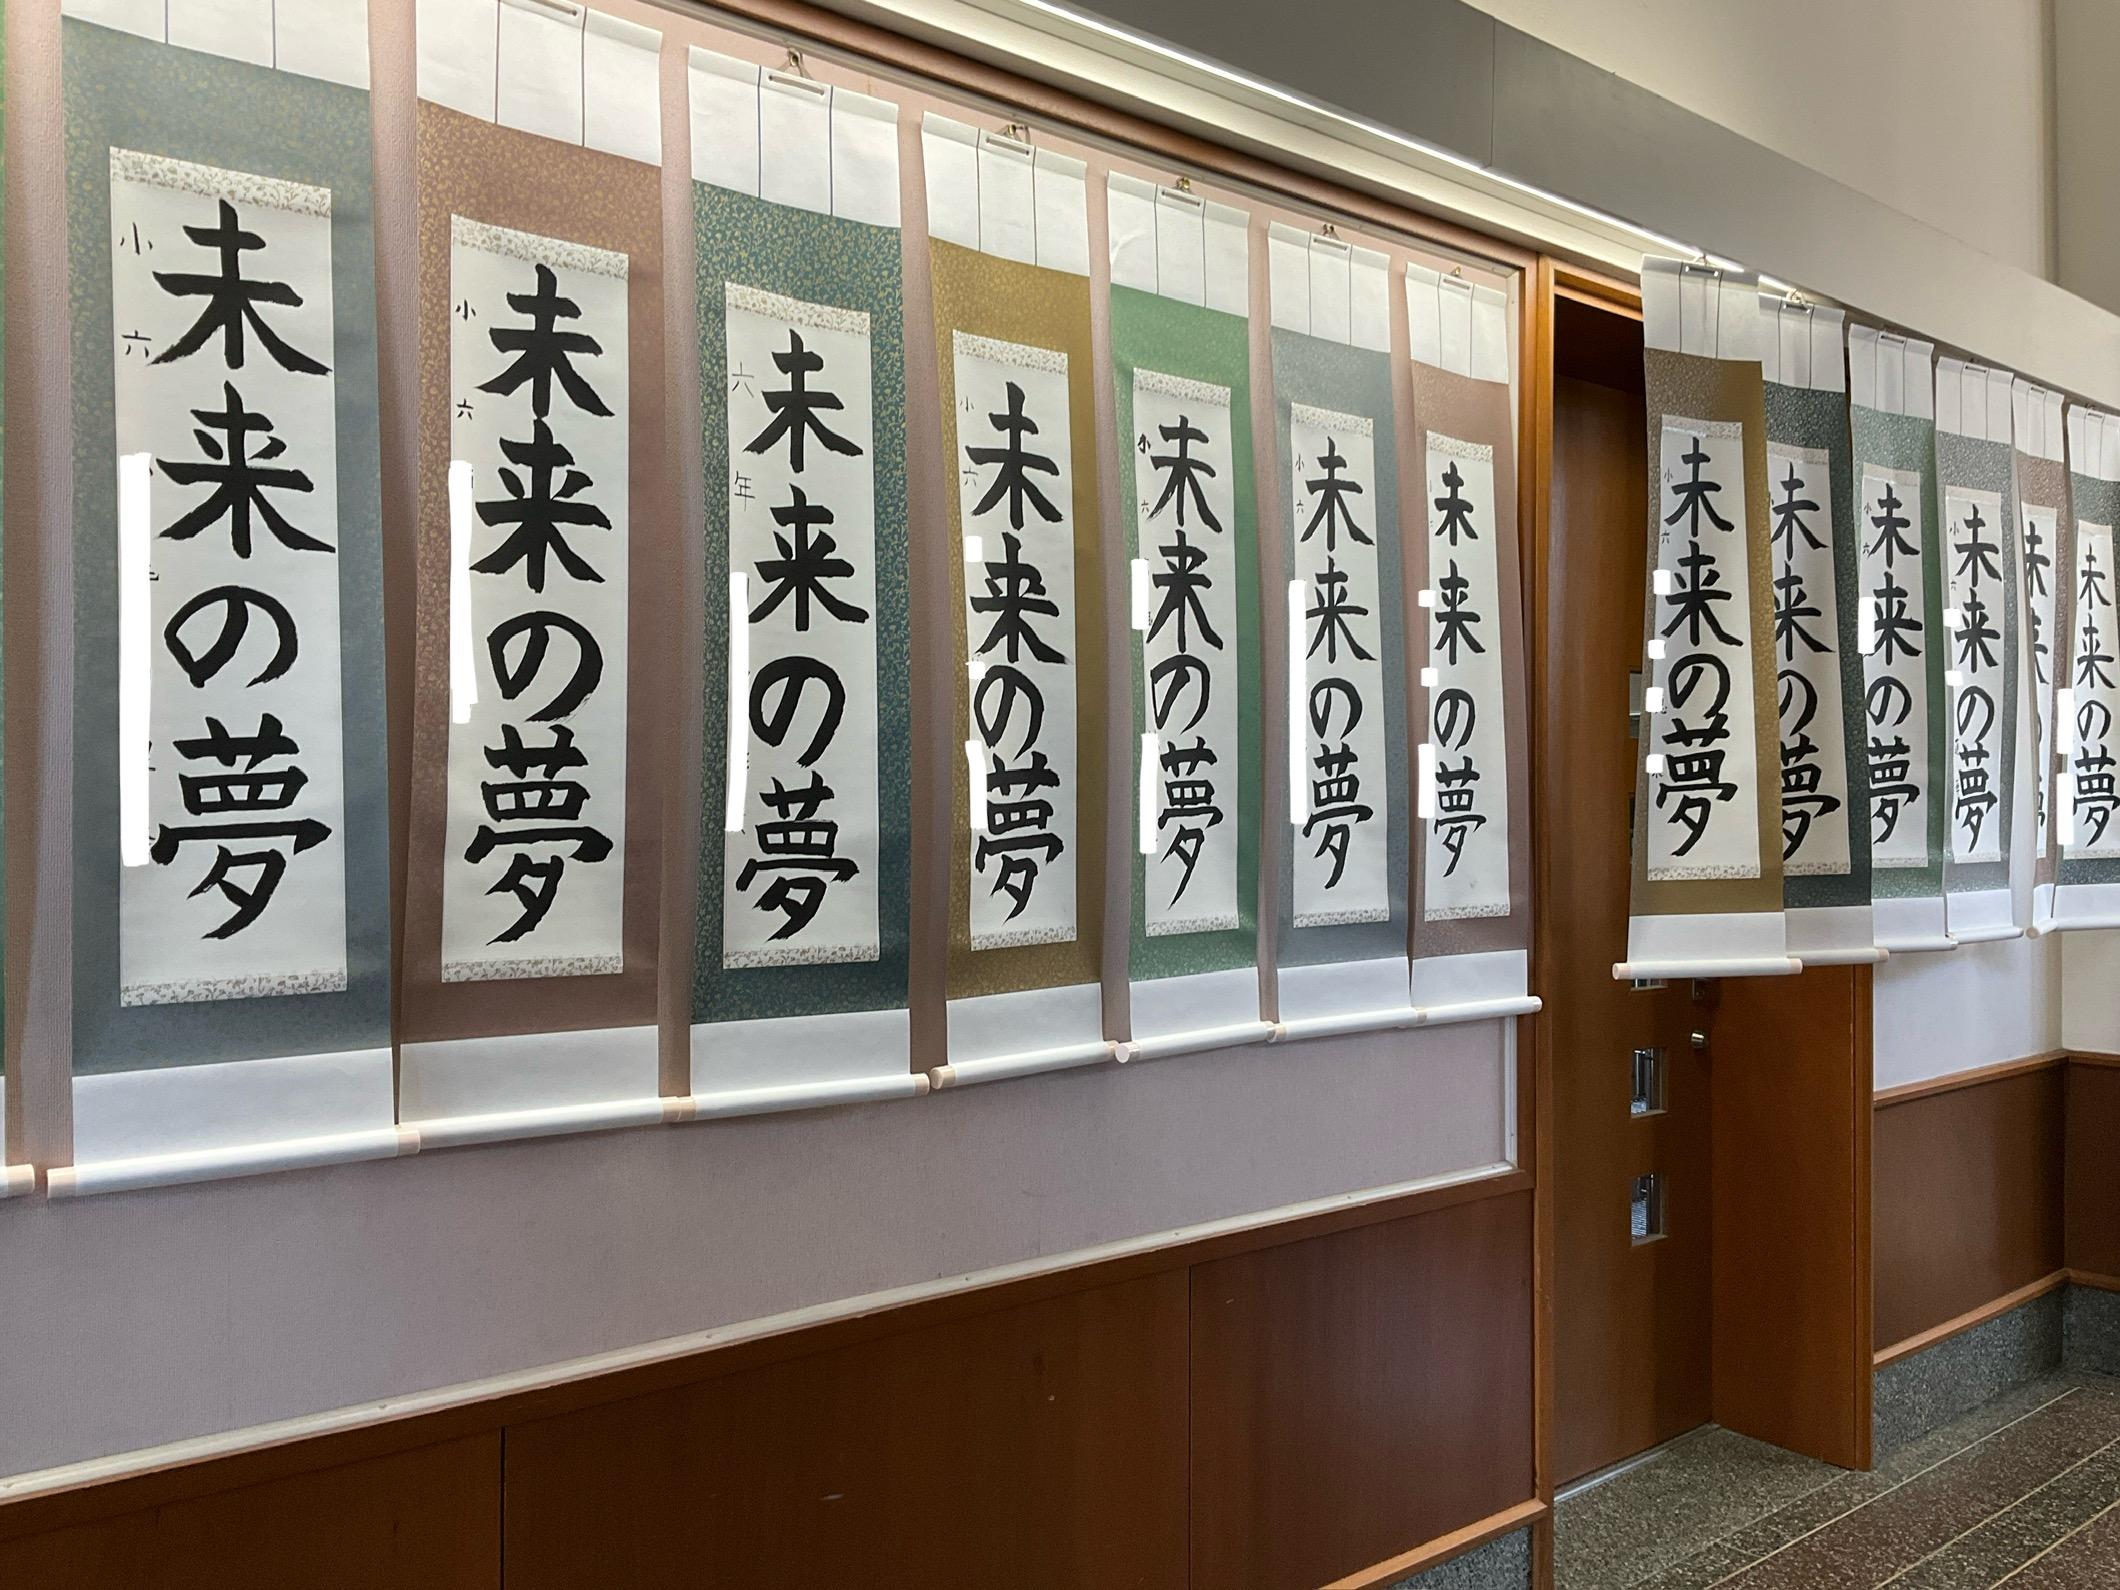 未来の夢
小六
未来の夢
小六
未来の夢
六年
未来の夢
小六
未来の夢
小六
未来の夢
小六
未来の夢
未来の夢
小六
未来の夢
未来の夢
小六
未来の夢
小六
未来の夢
未来の夢